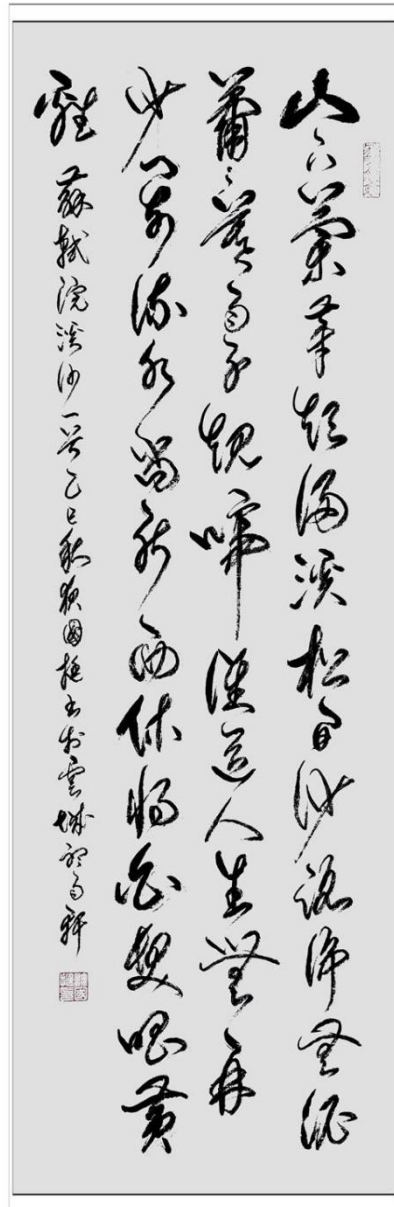 山下蘭芽短浸溪松間沙路淨無泥
蕭々暮雨子規啼誰道人生無再
少門前流水尚能西休將白髮唱黃
雞 蘇軾浣溪沙一首乙巳秋國書於雲城聽雨軒